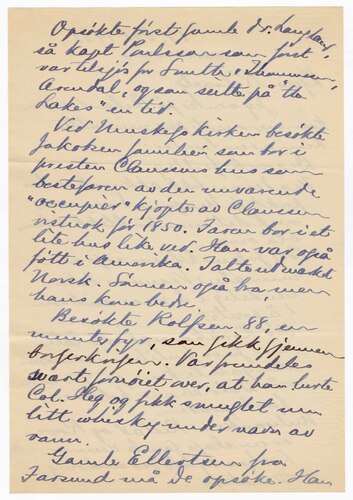 Opsøkte först gamle dr. Langland,
så kapt Paulssen som först
var tilsjös for Smith &
Arendal, og som seilte på "the
Lakes" en tid.
Ved Muskego kirken besökte
Jakobsen familien som bor i
presten Claussens hus som
bestefaren av den nuværende
"occupier" kjöpte av Claussen
vistnok för 1850. Faren bor i et
lite hus like ved. Han var også
fött i Amerika. Talte utmerket
Norsk. Sönnen også bra men
hans kone bedre.
Besökte Rolfsen, 88, en
munter fyr, som gikk gjennem
borgerkrigen. Var fremdeles
svært fornöiet over, at han lurte
Col. Heg og fikk smuglet inn
litt whisky under navn av
vann.
Gamle Ellertsen fra
Farsund må De opsöke. Han